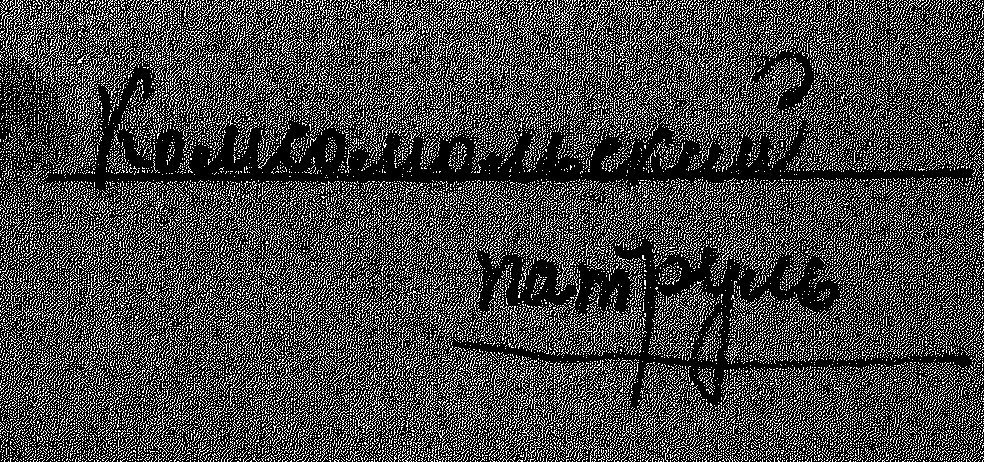 Комсомольский
патруль